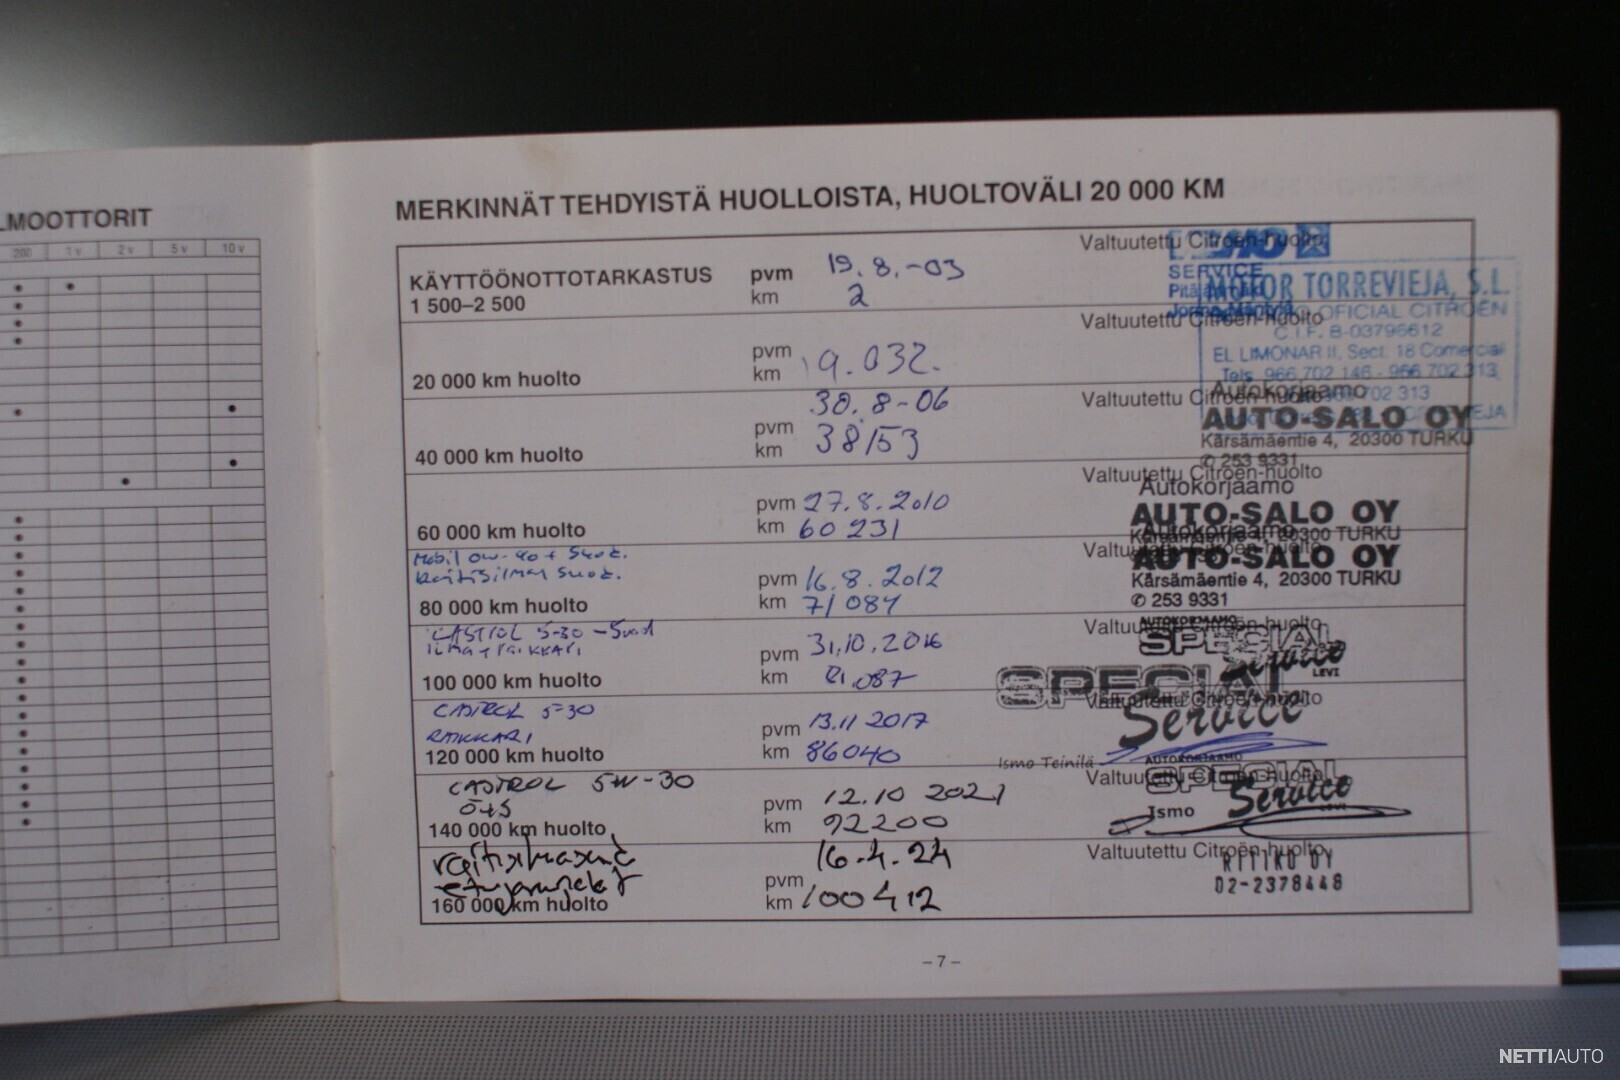 LMOOTTORIT
200 1 v 2 v 5 v 10 v
MERKINNÄT TEHDYISTÄ HUOLLOISTA, HUOLTOVÄLI 20 000 KM
KÄYTTÖÖNOTTOTARKASTUS
1 500–2 500
pvm 19.8.-03
km 2
Valtuutettu Citroën-huolto
SERVICE
MOTOR TORREVIEJA, S.L.
OFICIAL CITROËN
C.I.F. B-03796612
EL LIMONAR II, Sect. 18 Comercial
Tels. 966 702 146 - 966 702 313
20 000 km huolto
pvm
km 19.032.
Valtuutettu Citroën-huolto
40 000 km huolto
30.8-06
pvm
km 38153
Valtuutettu Citroën-huolto
Autokorjaamo
AUTO-SALO OY
Kärsämäentie 4, 20300 TURKU
✆ 253 9331
60 000 km huolto
pvm 27.8.2010
km 60 231
Valtuutettu Citroën-huolto
Autokorjaamo
AUTO-SALO OY
Kärsämäentie 4, 20300 TURKU
Mobil 0w-40 + Suod.
Raitisilman suod.
80 000 km huolto
pvm 16.8.2012
km 71 084
Valtuutettu Citroën-huolto
Autokorjaamo
AUTO-SALO OY
Kärsämäentie 4, 20300 TURKU
✆ 253 9331
CASTROL 5-30 -Suod
100 000 km huolto
pvm 31.10.2016
km 81.087
Valtuutettu Citroën-huolto
AUTOKORJAAMO
SPECIAL
Service
LEVI
CASTROL 5-30
RAIKKARI
120 000 km huolto
pvm 13.11 2017
km 86040
Valtuutettu Citroën-huolto
SPECIAL
Service
Ismo Teinilä
CASTROL 5W-30
Ö+S
140 000 km huolto
pvm 12.10 2021
km 92200
Valtuutettu Citroën-huolto
AUTOKORJAAMO
SPECIAL
Service
LEVI
Ismo
160 000 km huolto
16.4.24
pvm
km 100 412
Valtuutettu Citroën-huolto
02-2378448
– 7 –
NETTIAUTO